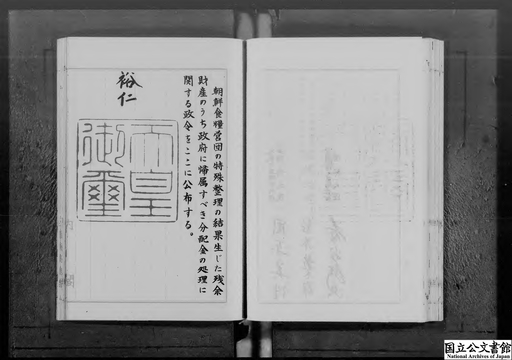 朝鮮食糧営団の特殊整理の結果生じた残余
財産のうち政府に帰属すべき分配金の処理に
関する政令をここに公布する。
裕仁
天皇
御璽
国立公文書館
National Archives of Japan